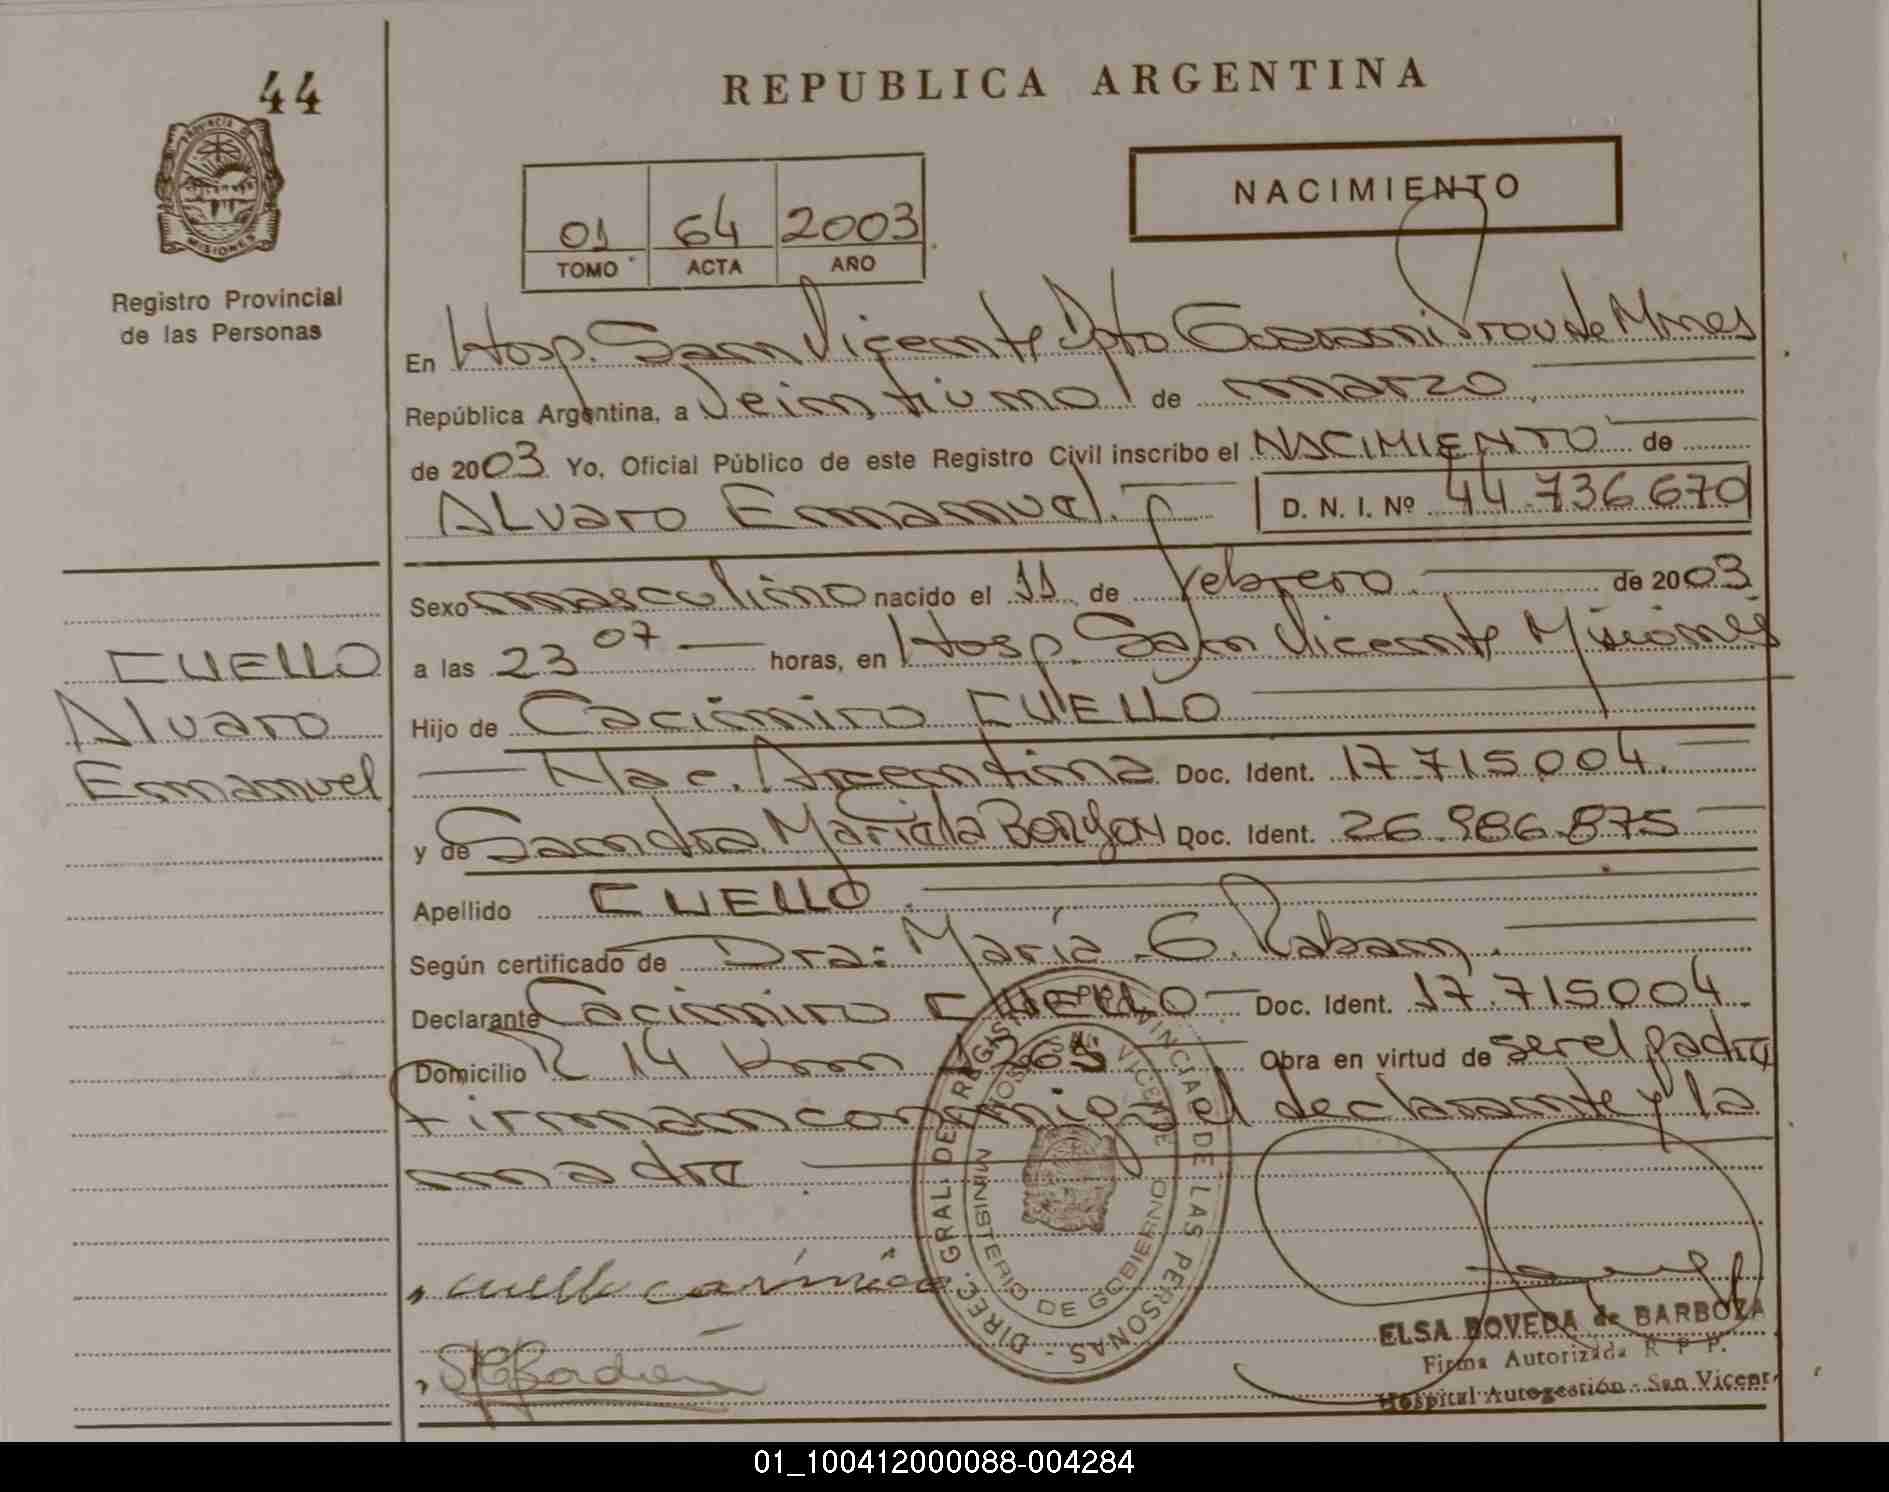 44
PROVINCIA DE
MISIONES
Registro Provincial
de las Personas
REPUBLICA ARGENTINA
01 64 2003
TOMO ACTA AÑO
NACIMIENTO
En Hosp. San Vicente Dpto Guarani Prov de Mnes
República Argentina, a Veintiuno de marzo
de 2003 Yo, Oficial Público de este Registro Civil inscribo el NACIMIENTO de
ALvaro Emanuel. D. N. I. Nº 44.736.670
Sexo masculino nacido el 11 de febrero de 2003
a las 23 07 horas, en Hosp. San Vicente Misiones
CUELLO
Alvaro
Emanuel
Hijo de Cacimiro CUELLO
Nac. Argentina Doc. Ident. 17.715.004.
y de Sandra Mariela Doc. Ident. 26.986.875
Apellido CUELLO.
Según certificado de Dra: María G. Raban.
Declarante Cacimiro CUELLO Doc. Ident. 17.715004.
Domicilio R 14 Km 1265 Obra en virtud de ser el padre
Firman conmigo el declarante y la
madre.
DIREC. GRAL. DEL REGIST. PROVINCIAL DE LAS PERSONAS
HOSP. SAN VICENTE
MINISTERIO DE GOBIERNO
ELSA BOVEDA de BARBOZA
Firma Autorizada R P P.
Hospital Autogestión - San Vicente
01_100412000088-004284